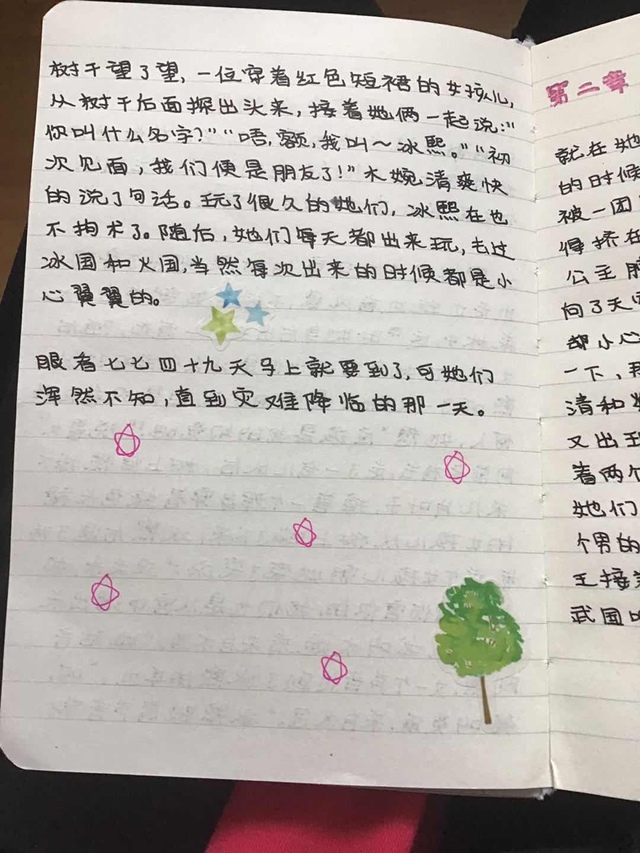 树干望了望，一位穿着红色短裙的女孩儿，
从树干后面探出头来，接着她俩一起说：“
你叫什么名字？”“唔，额，我叫～冰熙。”“初
次见面，我们便是朋友了！”木婉清爽快
的说了句话。玩了很久的她们，冰熙在也
不拘术了。随后，她们每天都出来玩，去过
冰国和火国，当然每次出来的时候都是小
心翼翼的。
眼看七七四十九天马上就要到了，可她们
浑然不知，直到灾难降临的那一天。
第二章
就在她
的时候
被一团
得挤在
公主
向了天
却小心
一下，那
清和
又出现
着两个
她们
个男的
王接
武国